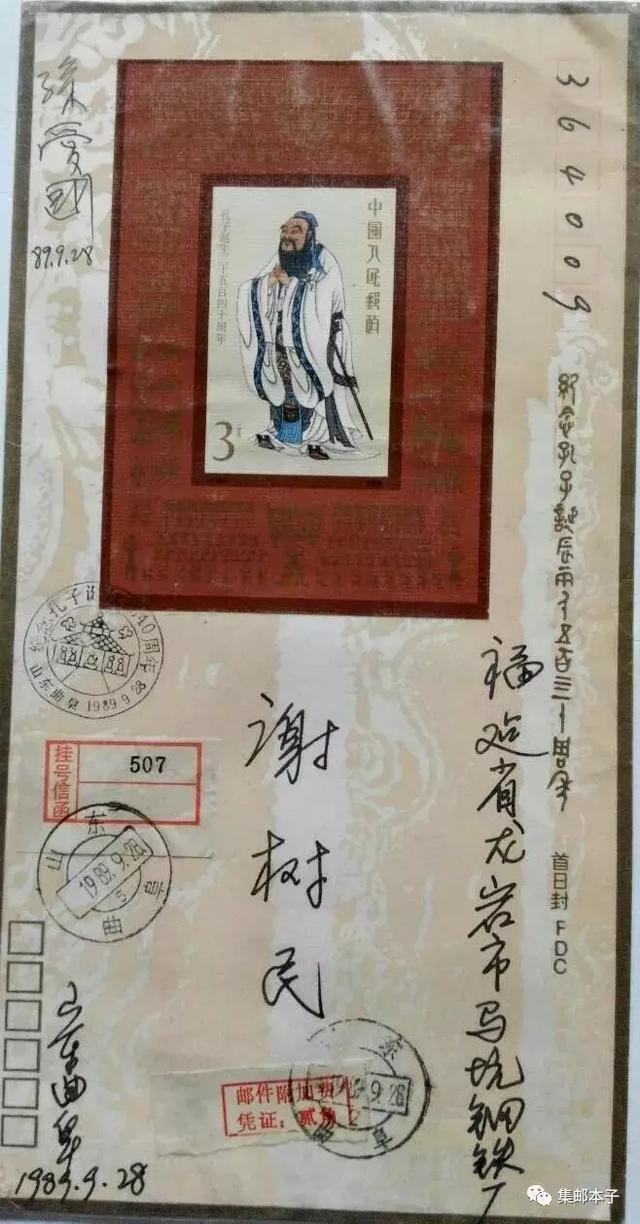 364009
福建省龙岩市马坑钢铁厂
谢树民
山东曲阜
1989.9.28
孙爱国
89.9.28
中国人民邮政
孔子诞生二千五百四十周年
3元
纪念孔子诞辰两千五百四十周年
首日封 FDC
山东曲阜 1989.9.28
挂号信函
507
山东
1989.9.28
5
曲阜
邮件附加费
凭证:贰角
集邮本子